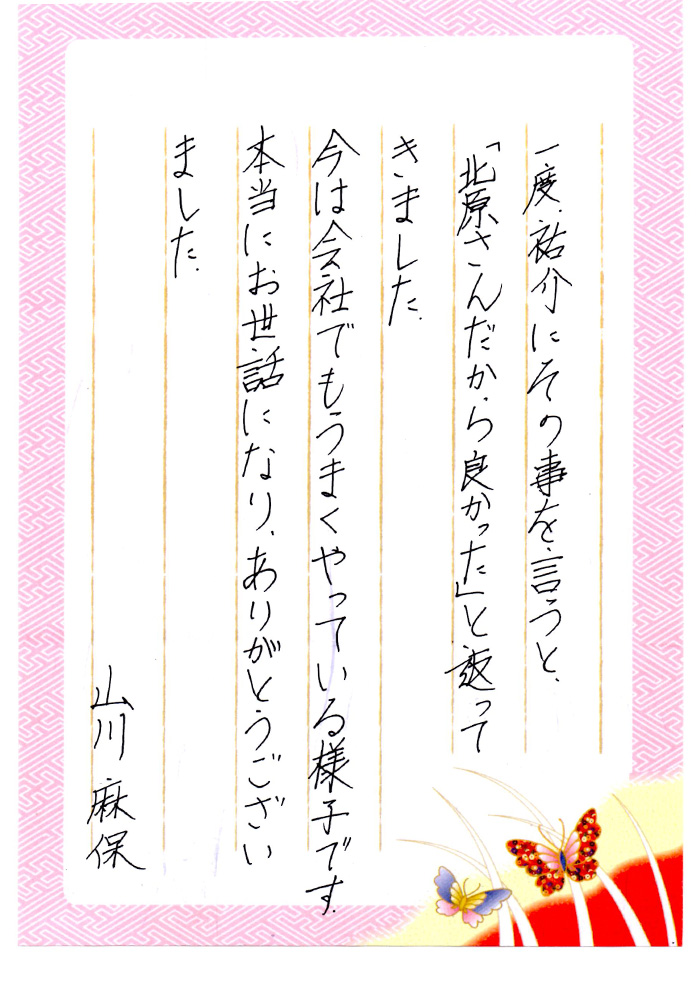 一度、祐介にその事を言うと、
「北原さんだから良かった」と返って
きました。
今は会社でもうまくやっている様子です。
本当にお世話になり、ありがとうござい
ました。
山川 麻保